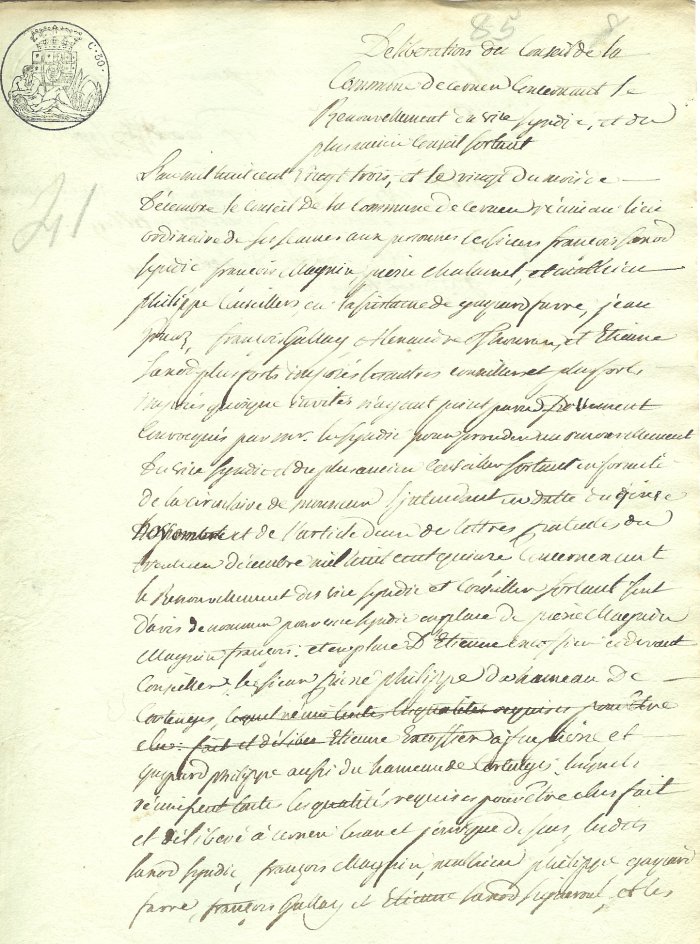 85
C. 30.
41
Deliberation du Conseil de la
Commune de cernex Concernant le
Renouvellement du vice syndic, et du
plus ancien Conseil sortant
L'an mil huit cent vingt trois, et le vingt du mois de
Décembre le Conseil de la Commune de cernex réuni au lieu
ordinaire de ses seances aux personnes des sieurs françois
syndic françois Magnin pierre et mathieu
philippe Conseillers en la personne de gaspard favre, jean
françois Gallay et Etienne
plus forts imposés les autres conseillers et plus forts
imposés quoique invités n'ayant point paru Duement
Convoqués par mr. le syndic pour proceder au renouvellement
Du vice syndic et du plus ancien Conseiller sortant en conformité
de la circulaire de monsieur l'intendant en datte du quinze
Novembre et de l'article deux de lettres patentes du
trente un décembre mil huit cent quinze Concernant
le Renouvellement des vice syndic et Conseiller sortant sont
d'avis de nommer pour vice syndic en place de pierre Magnin
Magnin françois. et en place D'Etienne ci devant
Conseiller le sieur pierre philippe du hameau de
lequel réunit toutes les qualités requises pour être
elu. fait et délibéré Etienne pierre et
gaspard philippe aussi du hameau de lesquels
réunissent toutes les qualités requises pour être elus fait
et délibéré à cernex les an et jour que dessus, lesdits
syndic, françois Magnin, mathieu philippe gaspard
favre, françois Gallay et Etienne et les